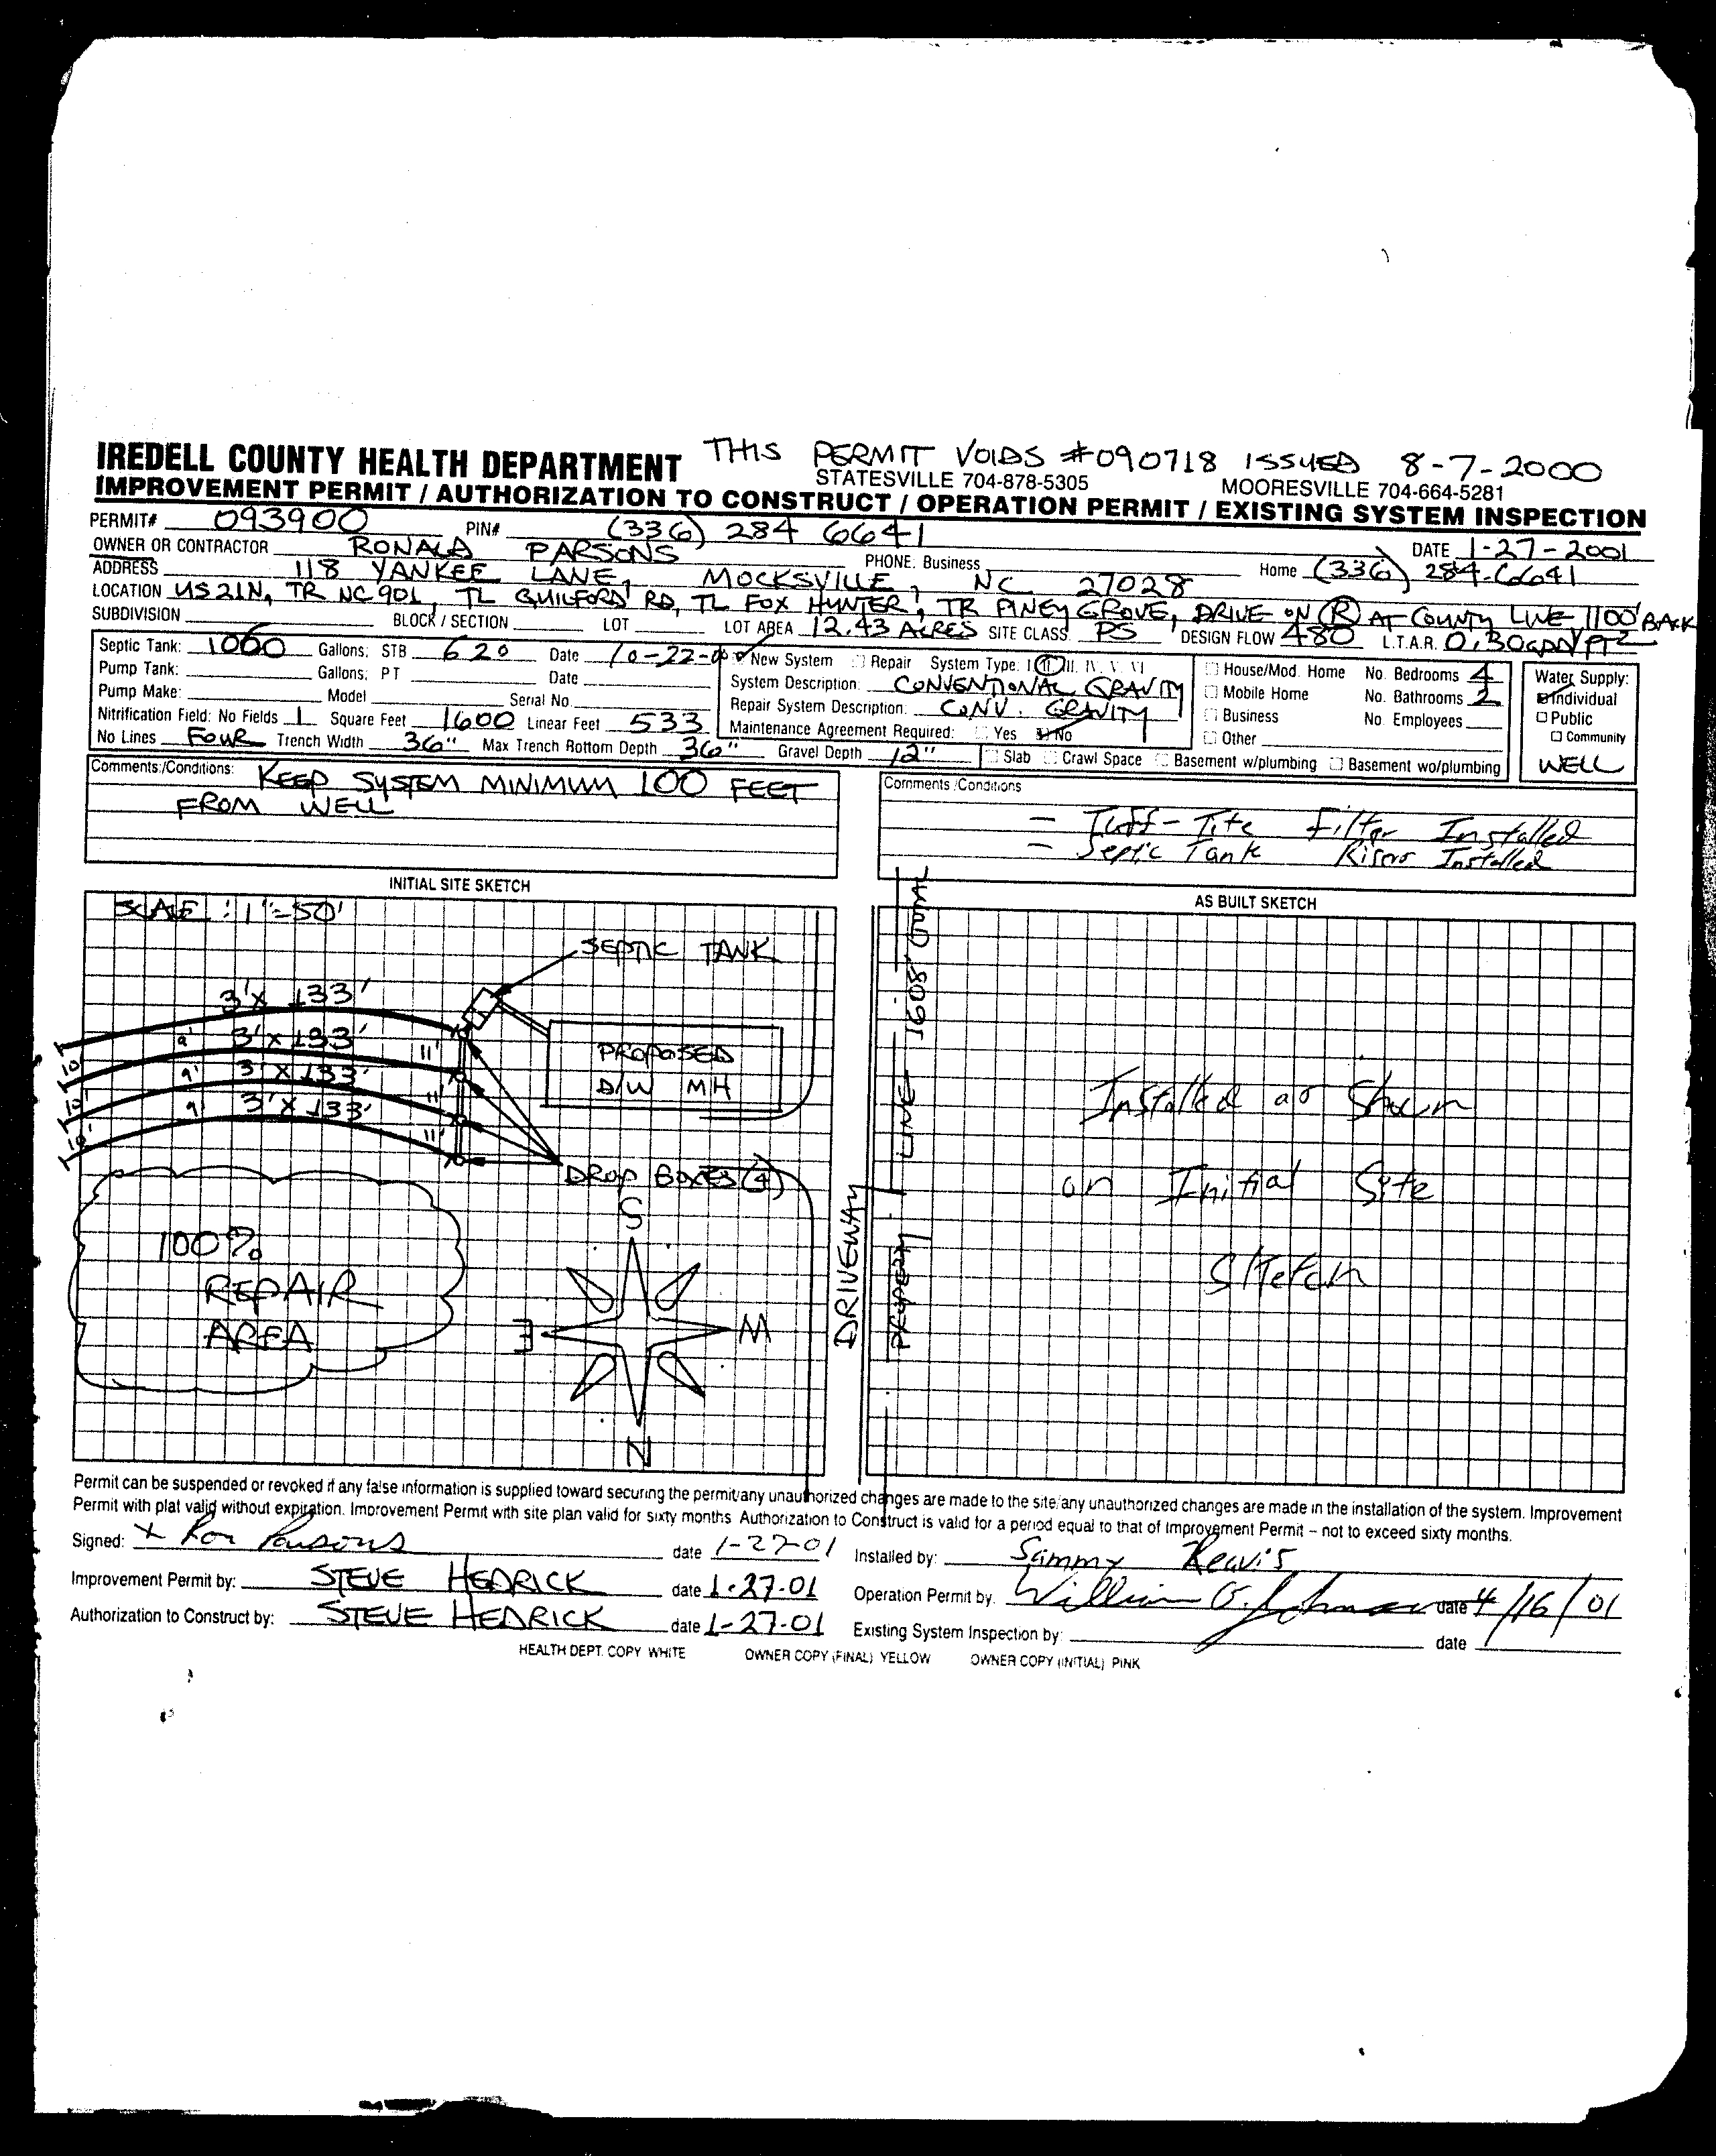 IREDELL COUNTY HEALTH DEPARTMENT THIS PERMIT VOIDS #090718 ISSUED 8-7-2000
STATESVILLE 704-878-5305 MOORESVILLE 704-664-5281
IMPROVEMENT PERMIT / AUTHORIZATION TO CONSTRUCT / OPERATION PERMIT / EXISTING SYSTEM INSPECTION
PERMIT# 093900 PIN# (336) 284 6641 DATE 1-27-2001
OWNER OR CONTRACTOR RONALD PARSONS PHONE: Business Home (336) 284-6641
ADDRESS 118 YANKEE LANE, MOCKSVILLE, NC 27028
LOCATION US 21N, TR NC 901, TL GUILFORD RD, TL FOX HUNTER, TR PINEY GROVE, DRIVE ON (R) AT COUNTY LINE 1100' BACK
SUBDIVISION BLOCK / SECTION LOT LOT AREA 12.43 ACRES SITE CLASS. PS DESIGN FLOW 480 L.T.A.R. 0.30 GPD/FT2
Septic Tank: 1000 Gallons: STB 620 Date 10-22-00 New System Repair System Type: I II III. IV. V. VI
Pump Tank: Gallons: PT Date System Description: CONVENTIONAL GRAVITY
Pump Make: Model Serial No. Repair System Description: CONV. GRAVITY
Nitrification Field: No Fields 1 Square Feet 1600 Linear Feet 533 Maintenance Agreement Required: Yes No
No Lines FOUR Trench Width 36" Max Trench Bottom Depth 36" Gravel Depth 12"
House/Mod. Home No. Bedrooms 4
Mobile Home No. Bathrooms 2
Business No. Employees
Other
Slab Crawl Space Basement w/plumbing Basement wo/plumbing
Water Supply:
Individual
Public
Community
WELL
Comments:/Conditions: KEEP SYSTEM MINIMUM 100 FEET
FROM WELL
Comments /Conditions
- Tuff-Tite Filter Installed
- Septic Tank Risers Installed
INITIAL SITE SKETCH
SCALE : 1"=50'
SEPTIC TANK
3' x 133'
9' 3' x 133' 11'
9' 3' x 133' 11'
9' 3' x 133' 11'
10'
10'
10'
PROPOSED
D/W MH
DROP BOXES (4)
100%
REPAIR
AREA
S
E W
N
DRIVEWAY
PROPERTY LINE 1608'
AS BUILT SKETCH
Installed as Shown
on Initial Site
Sketch
Permit can be suspended or revoked if any false information is supplied toward securing the permit/any unauthorized changes are made to the site/any unauthorized changes are made in the installation of the system. Improvement
Permit with plat valid without expiration. Improvement Permit with site plan valid for sixty months Authorization to Construct is valid for a period equal to that of Improvement Permit – not to exceed sixty months.
Signed: x Ron Parsons date 1-27-01 Installed by: Sammy Reavis
Improvement Permit by: STEVE HEDRICK date 1-27-01 Operation Permit by. William G. Johnson date 4/16/01
Authorization to Construct by: STEVE HEDRICK date 1-27-01 Existing System Inspection by: date
HEALTH DEPT. COPY WHITE OWNER COPY (FINAL) YELLOW OWNER COPY (INITIAL) PINK